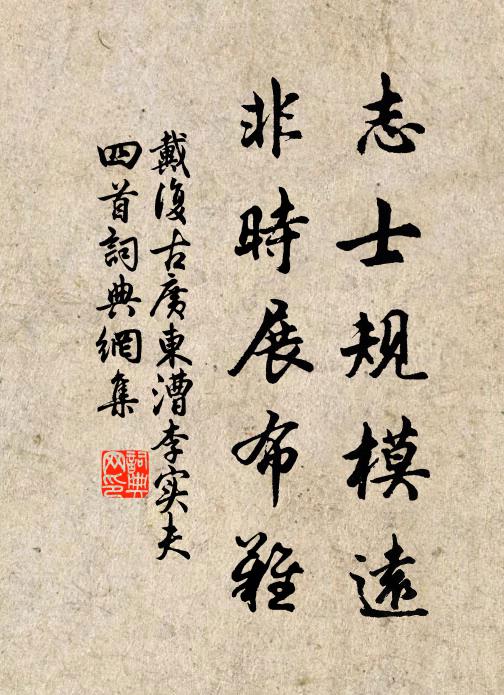 志士規模遠
非時展布難
戴復古廣東漕李实夫
四首詞典網集
詞典
网印